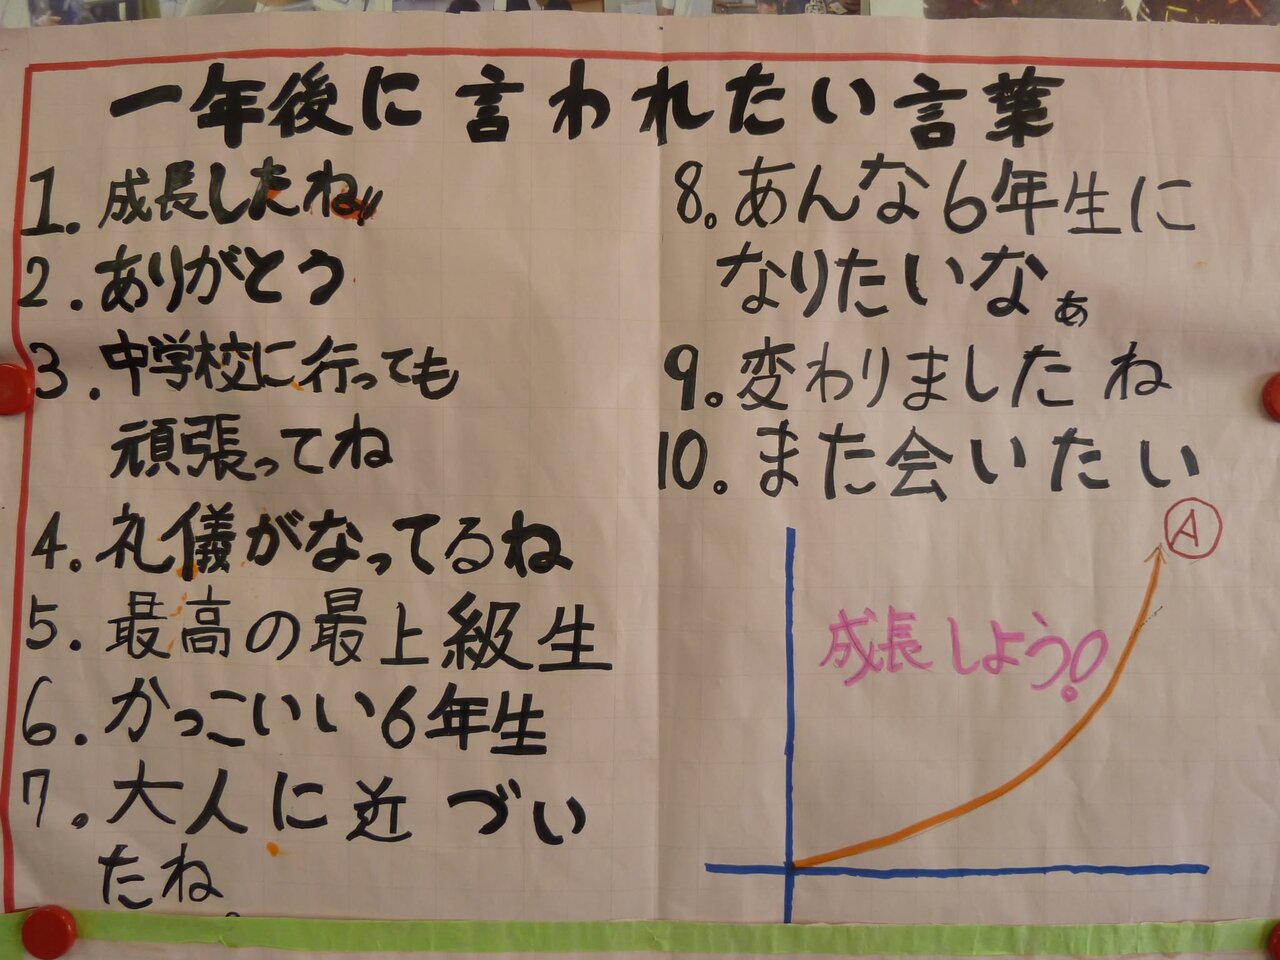 一年後に言われたい言葉
1. 成長したね〃
2. ありがとう
3. 中学校に行っても
頑張ってね
4. 礼儀がなってるね
5. 最高の最上級生
6. かっこいい6年生
7. 大人に近づい
たね
8。あんな6年生に
なりたいなぁ
9。変わりましたね
10。また会いたい
A
成長しよう!